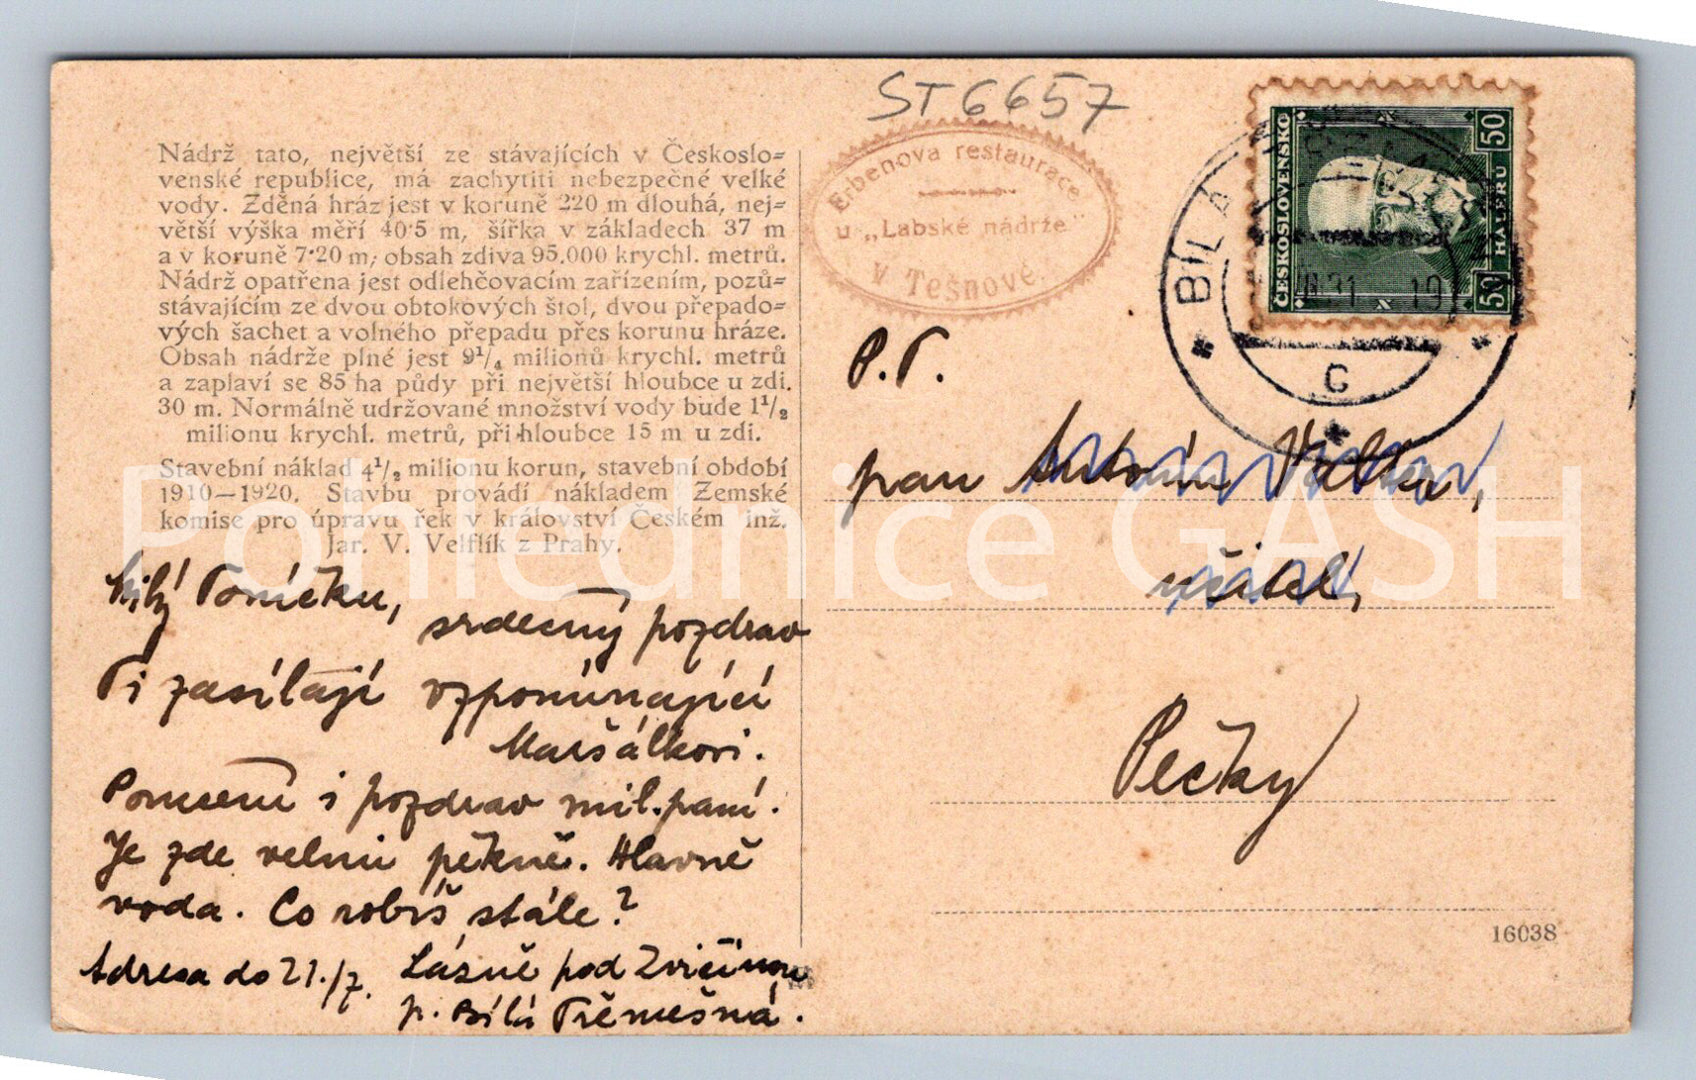 ST6657
Nádrž tato, největší ze stávajících v Českoslo=
venské republice, má zachytiti nebezpečné velké
vody. Zděná hráz jest v koruně 220 m dlouhá, nej=
větší výška měří 40·5 m, šířka v základech 37 m
a v koruně 7·20 m, obsah zdiva 95.000 krychl. metrů.
Nádrž opatřena jest odlehčovacím zařízením, pozů=
stávajícím ze dvou obtokových štol, dvou přepado=
vých šachet a volného přepadu přes korunu hráze.
Obsah nádrže plné jest 9¹/₄ milionů krychl. metrů
a zaplaví se 85 ha půdy při největší hloubce u zdi.
30 m. Normálně udržované množství vody bude 1¹/₂
milionu krychl. metrů, při hloubce 15 m u zdi.
Stavební náklad 4¹/₂ milionu korun, stavební období
1910—1920. Stavbu provádí nákladem Zemské
komise pro úpravu řek v království Českém inž.
Jar. V. Velflík z Prahy.
Milý Toníčku,
srdečný pozdrav
Ti zasílají vzpomínající
Maršálkovi.
Poručení i pozdrav mil. paní.
Je zde velmi pěkně. Hlavně
voda. Co robíš stále?
Adresa do 21./7. Lázně pod Zvičinou
p. Bílá Třemešná.
Erbenova restaurace
u „Labské nádrže"
v Tešnově.
ČESKOSLOVENSKO
50
HALÉŘŮ
50
BÍLÁ
31
19
C
P. T.
pan Antonín
učitel,
Pečky
16038
Pohlednice GASH